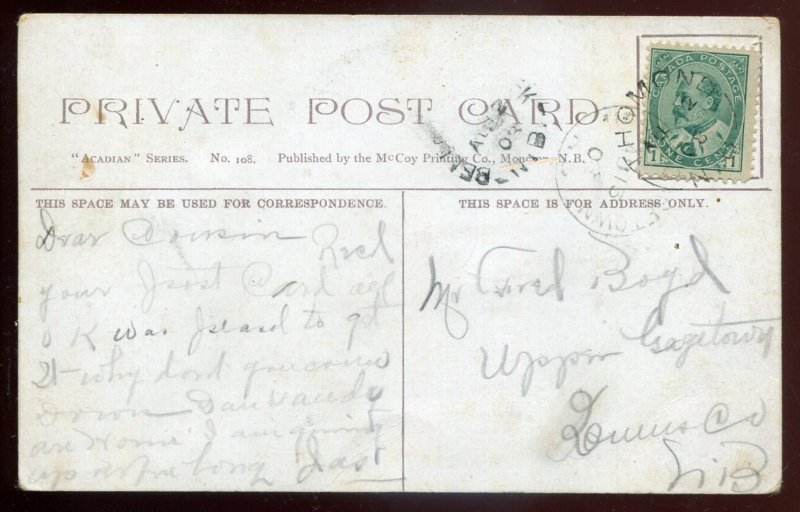 PRIVATE POST CARD.
"ACADIAN" SERIES. No. 108. Published by the McCoy Printing Co., Moncton, N.B.
CANADA POSTAGE
1 ONE CENT 1
THIS SPACE MAY BE USED FOR CORRESPONDENCE.
Dear Cousin Recd
your Post Card all
O K was to get
it why dont you come
Down
are Home I am going
up before long
THIS SPACE IS FOR ADDRESS ONLY.
Mr Fred Boyd
Upper Gagetown
Queens Co
N.B